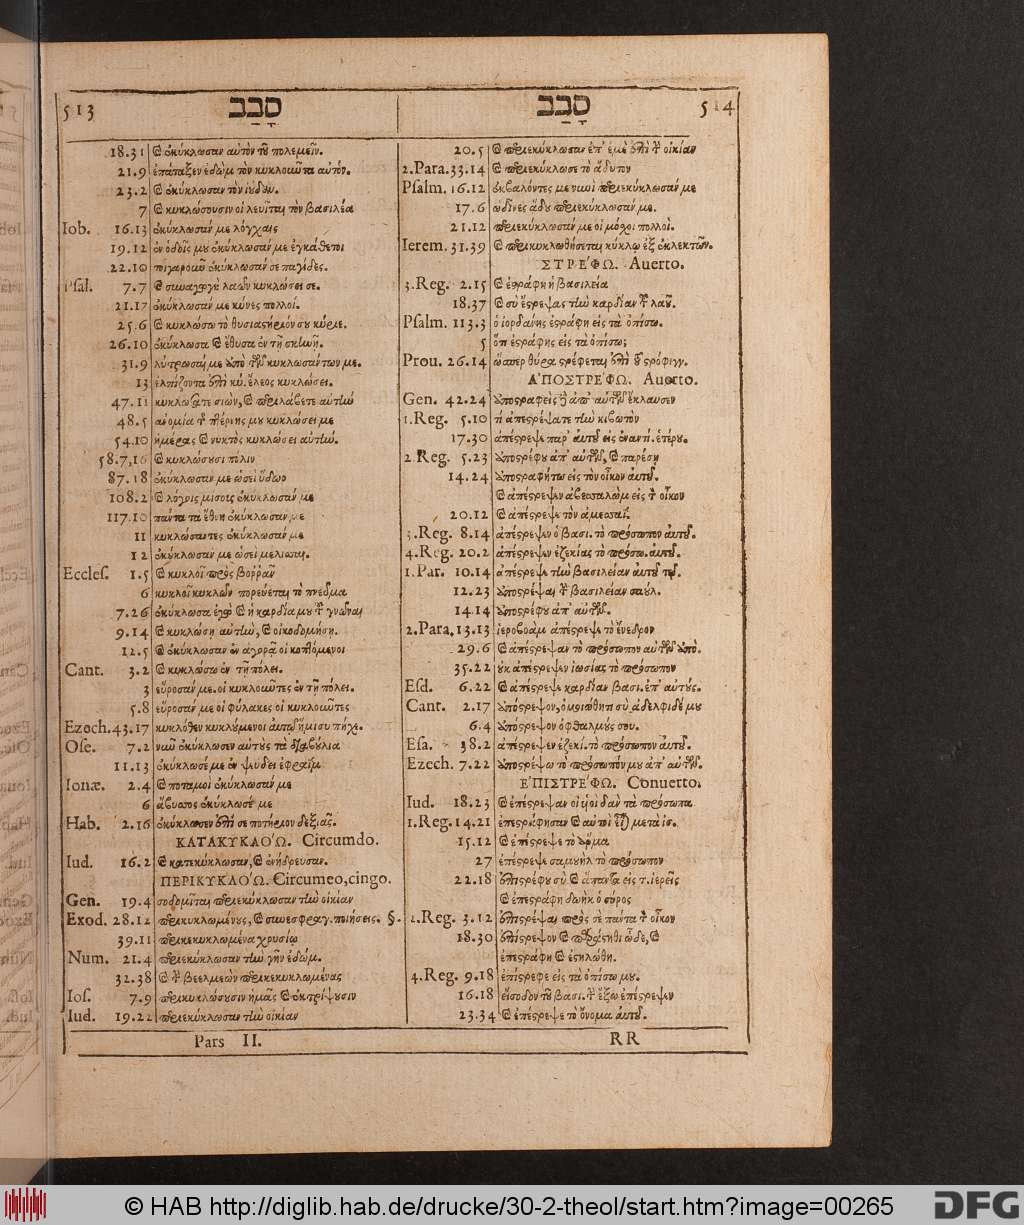 513 סָבַב
18.31 ϗ ἐκύκλωσαν αὐτὸν τοῦ πολεμεῖν.
21.9 ἐπάταξεν ἐδὼμ τὸν κυκλοῦντα αὐτόν.
23.2 ϗ ἐκύκλωσαν τὸν ἰούδαν.
7 ϗ κυκλώσουσιν οἱ λευῖται τὸν βασιλέα
Iob. 16.13 ἐκύκλωσάν με λόγχαις
19.12 ἐν ὁδοῖς μου ἐκύκλωσάν με ἐγκάθετοι
22.10 τοιγαροῦν ἐκύκλωσάν σε παγίδες.
Psal. 7.7 ϗ συναγωγὴ λαῶν κυκλώσει σε.
21.17 ἐκύκλωσάν με κύνες πολλοί.
25.6 ϗ κυκλώσω τὸ θυσιαστήριόν σου κύριε.
26.10 ἐκύκλωσα ϗ ἔθυσα ἐν τῇ σκηνῇ.
31.9 λύτρωσαί με ὑπὸ τῶν κυκλωσάντων με.
13 ἐλπίζοντα ἐπὶ κύ. ἔλεος κυκλώσει.
47.11 κυκλώσατε σιὼν, ϗ περιλάβετε αὐτὴν
48.5 ἀνομία τ πτέρνης μου κυκλώσει με
54.10 ἡμέρας ϗ νυκτὸς κυκλώσει αὐτήν.
58.7,16 ϗ κυκλώσουσι πόλιν
87.18 ἐκύκλωσάν με ὡσεὶ ὕδωρ
108.2 ϗ λόγοις μίσους ἐκύκλωσάν με
117.10 πάντα τὰ ἔθνη ἐκύκλωσάν με
11 κυκλώσαντες ἐκύκλωσάν με
12 ἐκύκλωσάν με ὡσεὶ μέλισσαι.
Eccles. 1.5 ϗ κυκλοῖ πρὸς βοῤῥᾶν
6 κυκλοῖ κυκλῶν πορεύεται τὸ πνεῦμα
7.26 ἐκύκλωσα ἐγὼ ϗ ἡ καρδία μου τ γνῶναι
9.14 ϗ κυκλώσῃ αὐτὴν, ϗ οἰκοδομήσῃ.
12.5 ϗ ἐκύκλωσαν ἐν ἀγορᾷ οἱ κοπτόμενοι
Cant. 3.2 ϗ κυκλώσω ἐν τῇ πόλει.
3 εὕροσάν με. οἱ κυκλοῦντες ἐν τῇ πόλει.
5.8 εὕροσάν με οἱ φύλακες οἱ κυκλοῦντες
Ezech. 43.17 κυκλόθεν κυκλούμενοι αὐτῷ ἥμισυ πήχε.
Ose. 7.2 νῦν ἐκύκλωσεν αὐτοὺς τὰ διαβούλια
11.13 ἐκύκλωσέ με ἐν ψεύδει ἐφραὶμ
Ionæ. 2.4 ϗ ποταμοὶ ἐκύκλωσάν με
6 ἄβυσσος ἐκύκλωσέ με
Hab. 2.16 ἐκύκλωσεν ἐπὶ σε ποτήριον δεξιᾶς.
ΚΑΤΑΚΥΚΛΟ΄Ω. Circumdo.
Iud. 16.2 ϗ κατεκύκλωσαν, ϗ ἐνήδρευσαν.
ΠΕΡΙΚΥΚΛΟ΄Ω. Circumeo, cingo.
Gen. 19.4 σοδομῖται περιεκύκλωσαν τὴν οἰκίαν
Exod. 28.12 περικυκλωμένους, ϗ συνεσφραγ. ποιήσεις. §.
39.11 περικεκυκλωμένα χρυσίῳ
Num. 21.4 περιεκύκλωσαν τὴν γῆν ἐδώμ.
32.38 ϗ τ βεελμεὼν περικεκυκλωμένας
Ios. 7.9 περικυκλώσουσιν ἡμᾶς ϗ ἐκτρίψουσιν
Iud. 19.22 περιεκύκλωσαν τὴν οἰκίαν
Pars II.
סָבַב 514
20.5 ϗ περιεκύκλωσαν ἐπ᾽ ἐμὲ ἐπὶ τ οἰκίαν
2.Para. 33.14 ϗ περιεκύκλωσε τὸ ἄδυτον
Psalm. 16.12 ἐκβαλόντες με νυνὶ περιεκύκλωσάν με
17.6 ὠδῖνες ᾅδου περιεκύκλωσάν με.
21.12 περιεκύκλωσάν με οἱ μόσχοι πολλοί.
Ierem. 31.39 ϗ περικυκλωθήσεται κύκλῳ ἐξ ἐκλεκτῶν.
ΣΤΡΕ΄ΦΩ. Auerto.
3.Reg. 2.15 ϗ ἐστράφη ἡ βασιλεία
18.37 ϗ σὺ ἔστρεψας τὴν καρδίαν τ λαοῦ.
Psalm. 113.3 ὁ ἰορδάνης ἐστράφη εἰς τὰ ὀπίσω.
5 ὅτι ἐστράφης εἰς τὰ ὀπίσω;
Prou. 26.14 ὥσπερ θύρα στρέφεται ἐπὶ τ στρόφιγγ.
Α᾽ΠΟΣΤΡΕ΄ΦΩ. Auerto.
Gen. 42.24 ἀποστραφεὶς ἀπ᾽ αὐτῶν ἔκλαυσεν
1.Reg. 5.10 τί ἀπεστρέψατε τὴν κιβωτὸν
17.30 ἀπέστρεψε παρ᾽ αὐτοῦ εἰς ἐναντί. ἑτέρου.
2.Reg. 5.23 ἀποστρέφου ἀπ᾽ αὐτῶν, ϗ παρέσῃ
14.24 ἀποστραφήτω εἰς τὸν οἶκον αὐτοῦ.
ϗ ἀπέστρεψεν ἀβεσσαλὼμ εἰς τ οἶκον
20.12 ϗ ἀπέστρεψε τὸν ἀμεσσαΐ.
3.Reg. 8.14 ἀπέστρεψεν ὁ βασι. τὸ πρόσωπον αὐτοῦ.
4.Reg. 20.2 ἀπέστρεψεν ἐζεκίας τὸ πρόσω. αὐτοῦ.
1.Par. 10.14 ἀπέστρεψε τὴν βασιλείαν αὐτοῦ
12.23 ἀποστρέψαι τ βασιλείαν σαούλ.
14.14 ἀποστρέφου ἀπ᾽ αὐτῶν.
2.Para. 13.13 ἱεροβοὰμ ἀπέστρεψε τὸ ἔνεδρον
29.6 ϗ ἀπέστρεψαν τὸ πρόσωπον αὐτῶν ἀπὸ.
35.22 οὐκ ἀπέστρεψεν ἰωσίας τὸ πρόσωπον
Esd. 6.22 ϗ ἀπέστρεψε καρδίαν βασι. ἐπ᾽ αὐτούς.
Cant. 2.17 ἀπόστρεψον, ὁμοιώθητι σὺ ἀδελφιδέ μου
6.4 ἀπόστρεψον ὀφθαλμούς σου.
Esa. 38.2 ἀπέστρεψεν ἐζεκί. τὸ πρόσωπον αὐτοῦ.
Ezech. 7.22 ἀποστρέψω τὸ πρόσωπόν μου ἀπ᾽ αὐτῶν.
Ε᾽ΠΙΣΤΡΕ΄ΦΩ. Conuerto.
Iud. 18.23 ϗ ἐπέστρεψαν οἱ υἱοὶ δὰν τὰ πρόσωπα
1.Reg. 14.21 ἐπεστράφησαν ϗ αὐτοὶ μετὰ ἰσ.
15.12 ϗ ἐπέστρεψε τὸ ἅρμα
27 ἐπέστρεψε σαμουὴλ τὸ πρόσωπον
22.18 ἐπιστρέφου σὺ ϗ ἀπάντα εἰς τ. ἱερεῖς
ϗ ἐπεστράφη δωὴκ ὁ σύρος
2.Reg. 3.12 ἐπιστρέψαι πρὸς σὲ πάντα τ οἶκον
18.30 ἐπίστρεψον ϗ παράστηθι ὧδε, ϗ
ἐπεστράφη ϗ ἐστηλώθη.
4.Reg. 9.18 ἐπίστρεφε εἰς τὰ ὀπίσω μου.
16.18 εἴσοδον τοῦ βασι. τ ἔξω ἐπέστρεψεν
23.34 ϗ ἐπέστρεψε τὸ ὄνομα αὐτοῦ.
RR
© HAB http://diglib.hab.de/drucke/30-2-theol/start.htm?image=00265
DFG